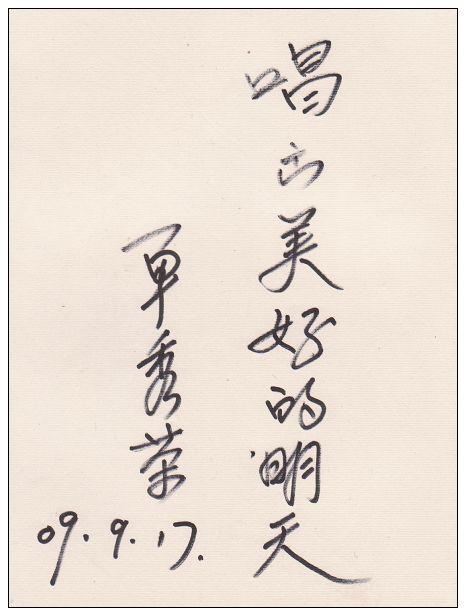 唱出美好的明天
单秀荣
09.9.17.